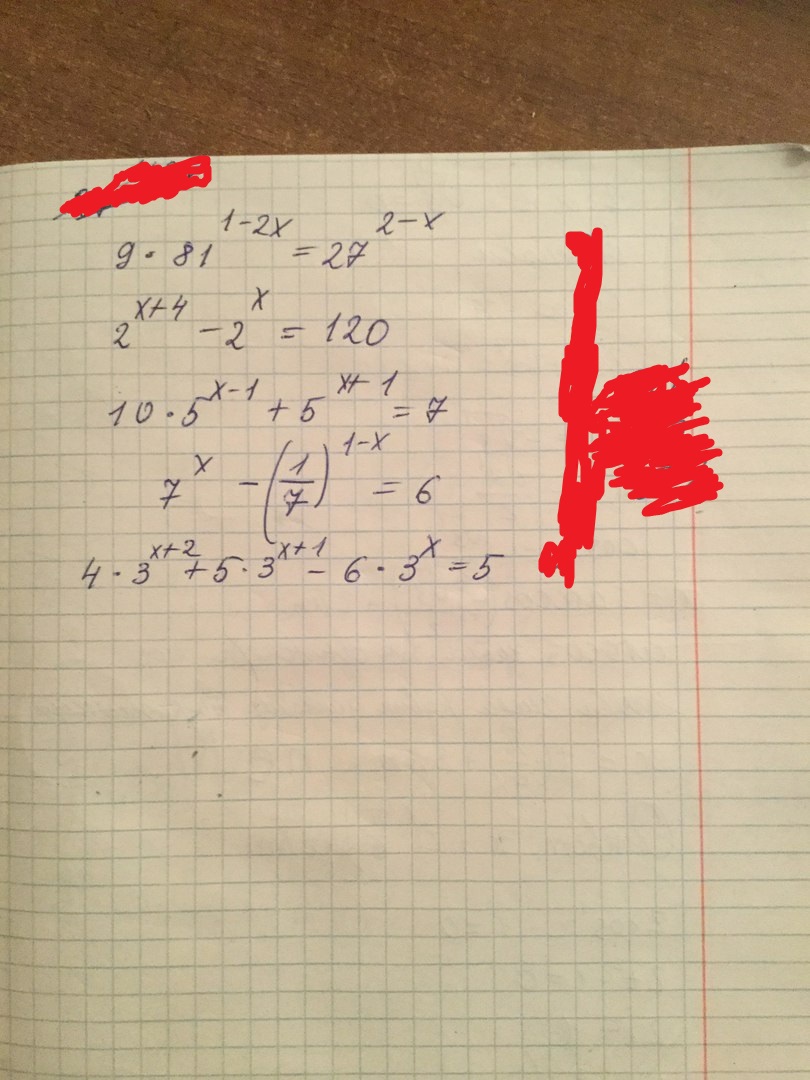 9 · 81^{1-2x} = 27^{2-x}
2^{x+4} - 2^{x} = 120
10 · 5^{x-1} + 5^{x+1} = 7
7^{x} - (1/7)^{1-x} = 6
4 · 3^{x+2} + 5 · 3^{x+1} - 6 · 3^{x} = 5